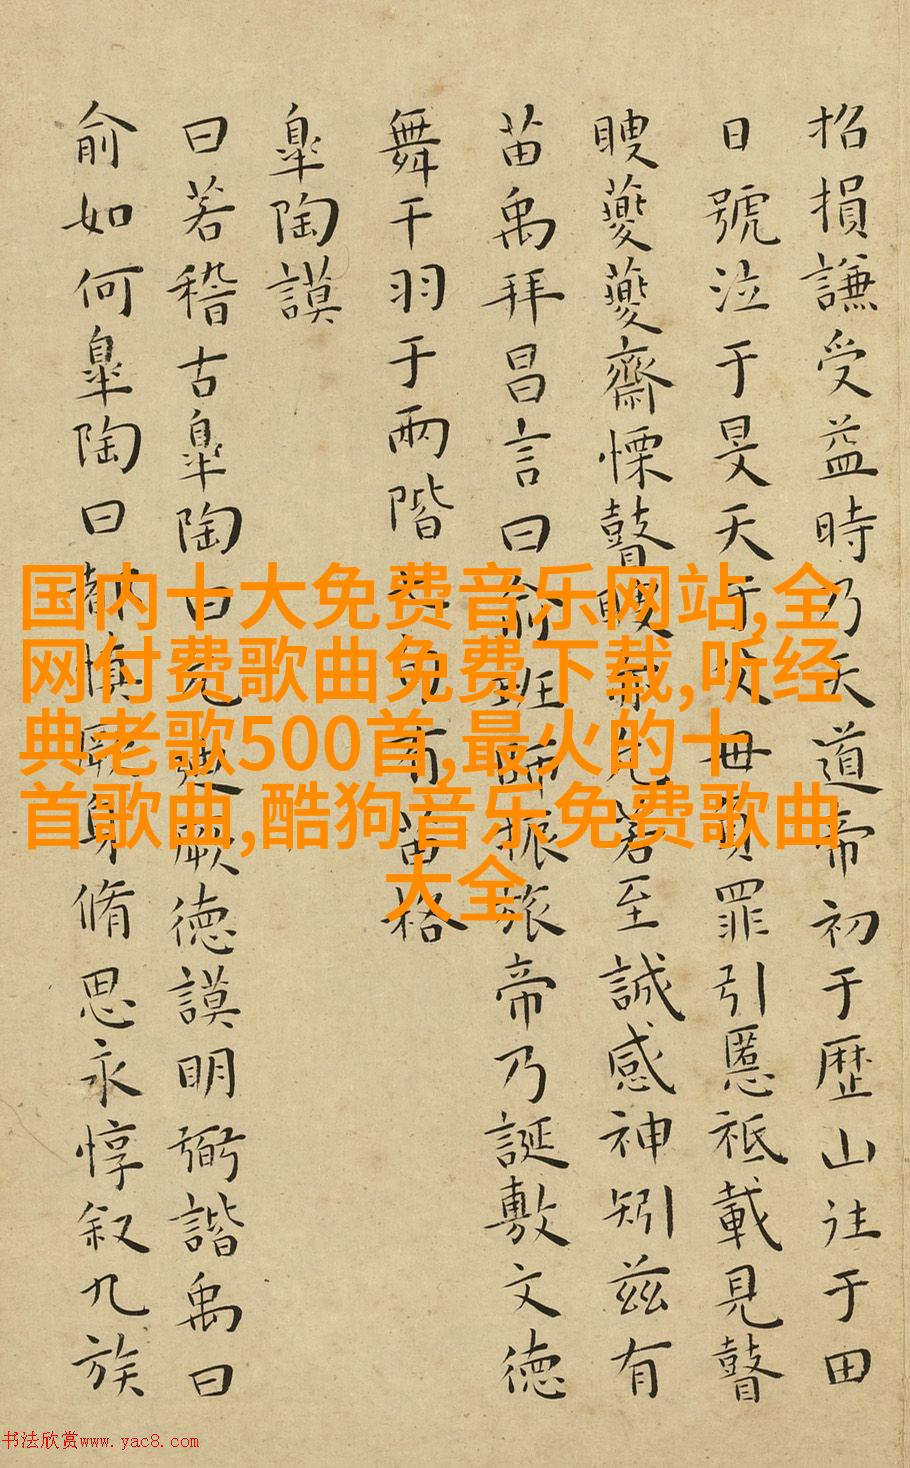 招損謙受益時乃天道帝初于歷山往于田
日號泣于旻天于父母負罪引慝祗載見瞽
瞍夔夔齋慄瞽瞍亦允若至誠感神矧茲有
苗禹拜昌言曰俞班師振旅帝乃誕敷文德
舞干羽于兩階七旬有苗格
皐陶謨
曰若稽古皐陶曰允迪厥德謨明弼諧禹曰
俞如何皐陶曰都慎厥身脩思永惇叙九族
国内十大免费音乐网站,全
网付费歌曲免费下载,听经
典老歌500首,最火的十
首歌曲,酷狗音乐免费歌曲
大全
书法欣赏www.yac8.com